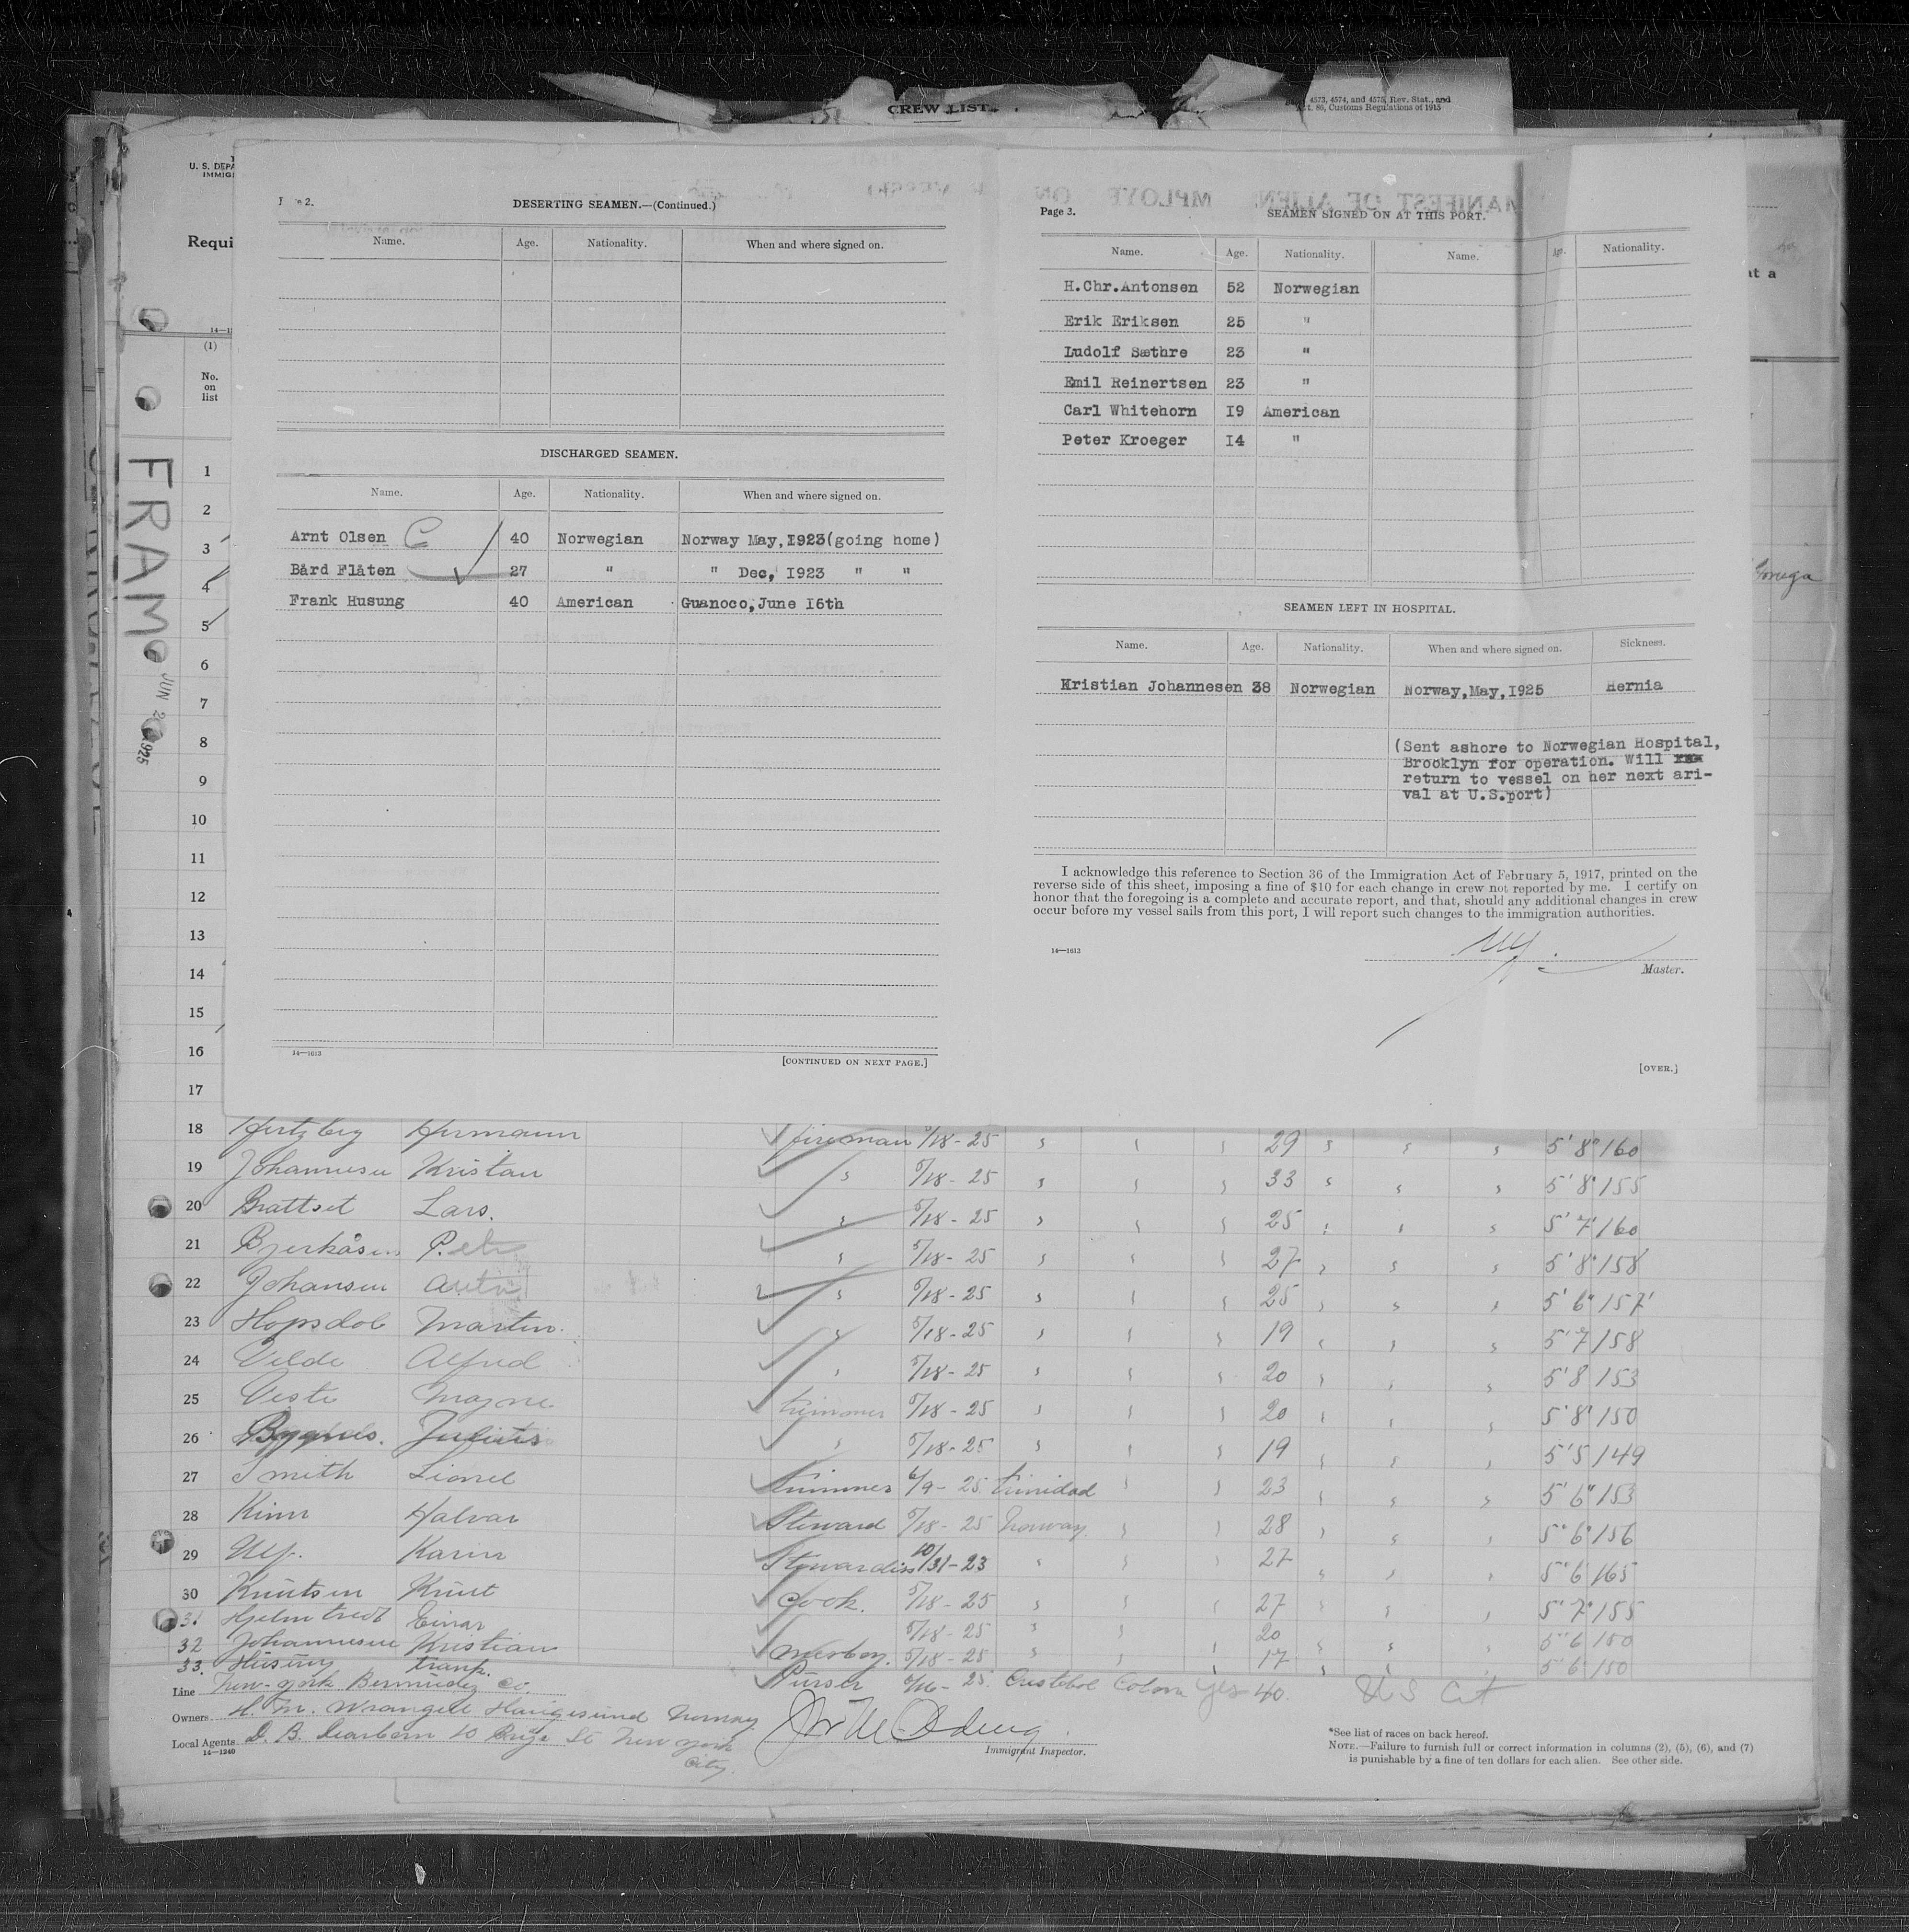 CREW LIST
4573, 4574, and 4575, Rev. Stat., and
86, Customs Regulations of 1915
U. S. DEPA
IMMIG
Requi
at a
14—1
(1)
No.
on
list
FRAM
JUN 2 1925
Page 2.
DESERTING SEAMEN.—(Continued.)
Name. Age. Nationality. When and where signed on.
DISCHARGED SEAMEN.
Name. Age. Nationality. When and where signed on.
Arnt Olsen C 40 Norwegian Norway May,1923(going home)
Bård Flåten 27 " " Dec, 1923 " "
Frank Husung 40 American Guanoco,June 16th
14—1613
[CONTINUED ON NEXT PAGE.]
MANIFEST OF ALIEN MPLOYE ON VESSEL
Page 3.
SEAMEN SIGNED ON AT THIS PORT.
Name. Age. Nationality. Name. Age. Nationality.
H.Chr.Antonsen 52 Norwegian
Erik Eriksen 25 "
Ludolf Sæthre 23 "
Emil Reinertsen 23 "
Carl Whitehorn 19 American
Peter Kroeger 14 "
SEAMEN LEFT IN HOSPITAL.
Name. Age. Nationality. When and where signed on. Sickness.
Kristian Johannesen 38 Norwegian Norway,May,1925 Hernia
(Sent ashore to Norwegian Hospital,
Brooklyn for operation. Will
return to vessel on her next ari-
val at U.S.port)
I acknowledge this reference to Section 36 of the Immigration Act of February 5, 1917, printed on the
reverse side of this sheet, imposing a fine of $10 for each change in crew not reported by me. I certify on
honor that the foregoing is a complete and accurate report, and that, should any additional changes in crew
occur before my vessel sails from this port, I will report such changes to the immigration authorities.
14—1613
Master.
[OVER.]
1
2
3
4
5
6
7
8
9
10
11
12
13
14
15
16
17
18 Hertzberg Hermann fireman 5/18-25 29 5' 8" 160
19 Johannesen Kristan 5/18-25 33 5' 8" 155
20 Brattset Lars. 5/18-25 25 5' 7" 160
21 Bjerkåsen 5/18-25 27 5' 8" 158
22 Johansen 5/18-25 25 5' 6" 157
23 Hopsdal Martin. 5/18-25 19 5' 7 158
24 Velde Alfred 5/18-25 20 5' 8 153
25 Magne trimmer 5/18-25 20 5' 8" 150
26 Julius 5/18-25 19 5' 5 149
27 Smith Lionel trimmer 6/9-25 trinidad 23 5' 6" 153
28 Kinn Halvar Steward 5/18-25 Norway 28 5' 6" 156
29 Ulf. Karin Stewardiss 10/31-23 27 5' 6 165
30 Knutsen Knut Cook. 5/18-25 27 5' 7" 155
31 Einar 5/18-25 20 5' 6 150
32 Johannesen Kristian messboy. 5/18-25 17 5' 6" 150
33. Husung Frank. Purser 6/16-25 Cristobal Colon Yes 40. US Cit
Line New-York Bermudez Co.
Owners H. M. Wrangell Haugesund Norway
Local Agents D. B. Dearborn 10 Bridge St New York
City.
14—1240
Immigrant Inspector.
*See list of races on back hereof.
NOTE.—Failure to furnish full or correct information in columns (2), (5), (6), and (7)
is punishable by a fine of ten dollars for each alien. See other side.